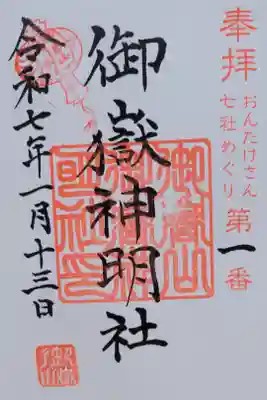 奉拝
おんたけさん
七社めぐり
第一番
御嶽神明社
令和七年一月十三日